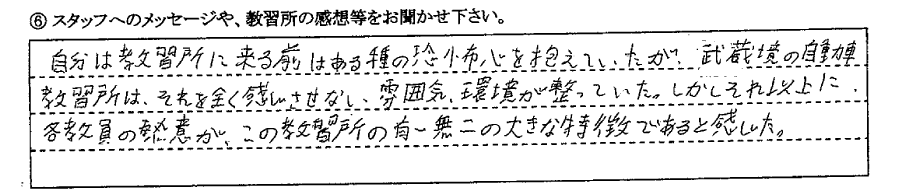 ⑥ スタッフへのメッセージや、教習所の感想等をお聞かせ下さい。
自分は教習所に来る前はある種の恐怖心を抱えていたが、武蔵境の自動車
教習所は、それを全く感じさせない、雰囲気、環境が整っていた。しかしそれ以上に、
各教員の熱意が、この教習所の有一無二の大きな特徴であると感じた。